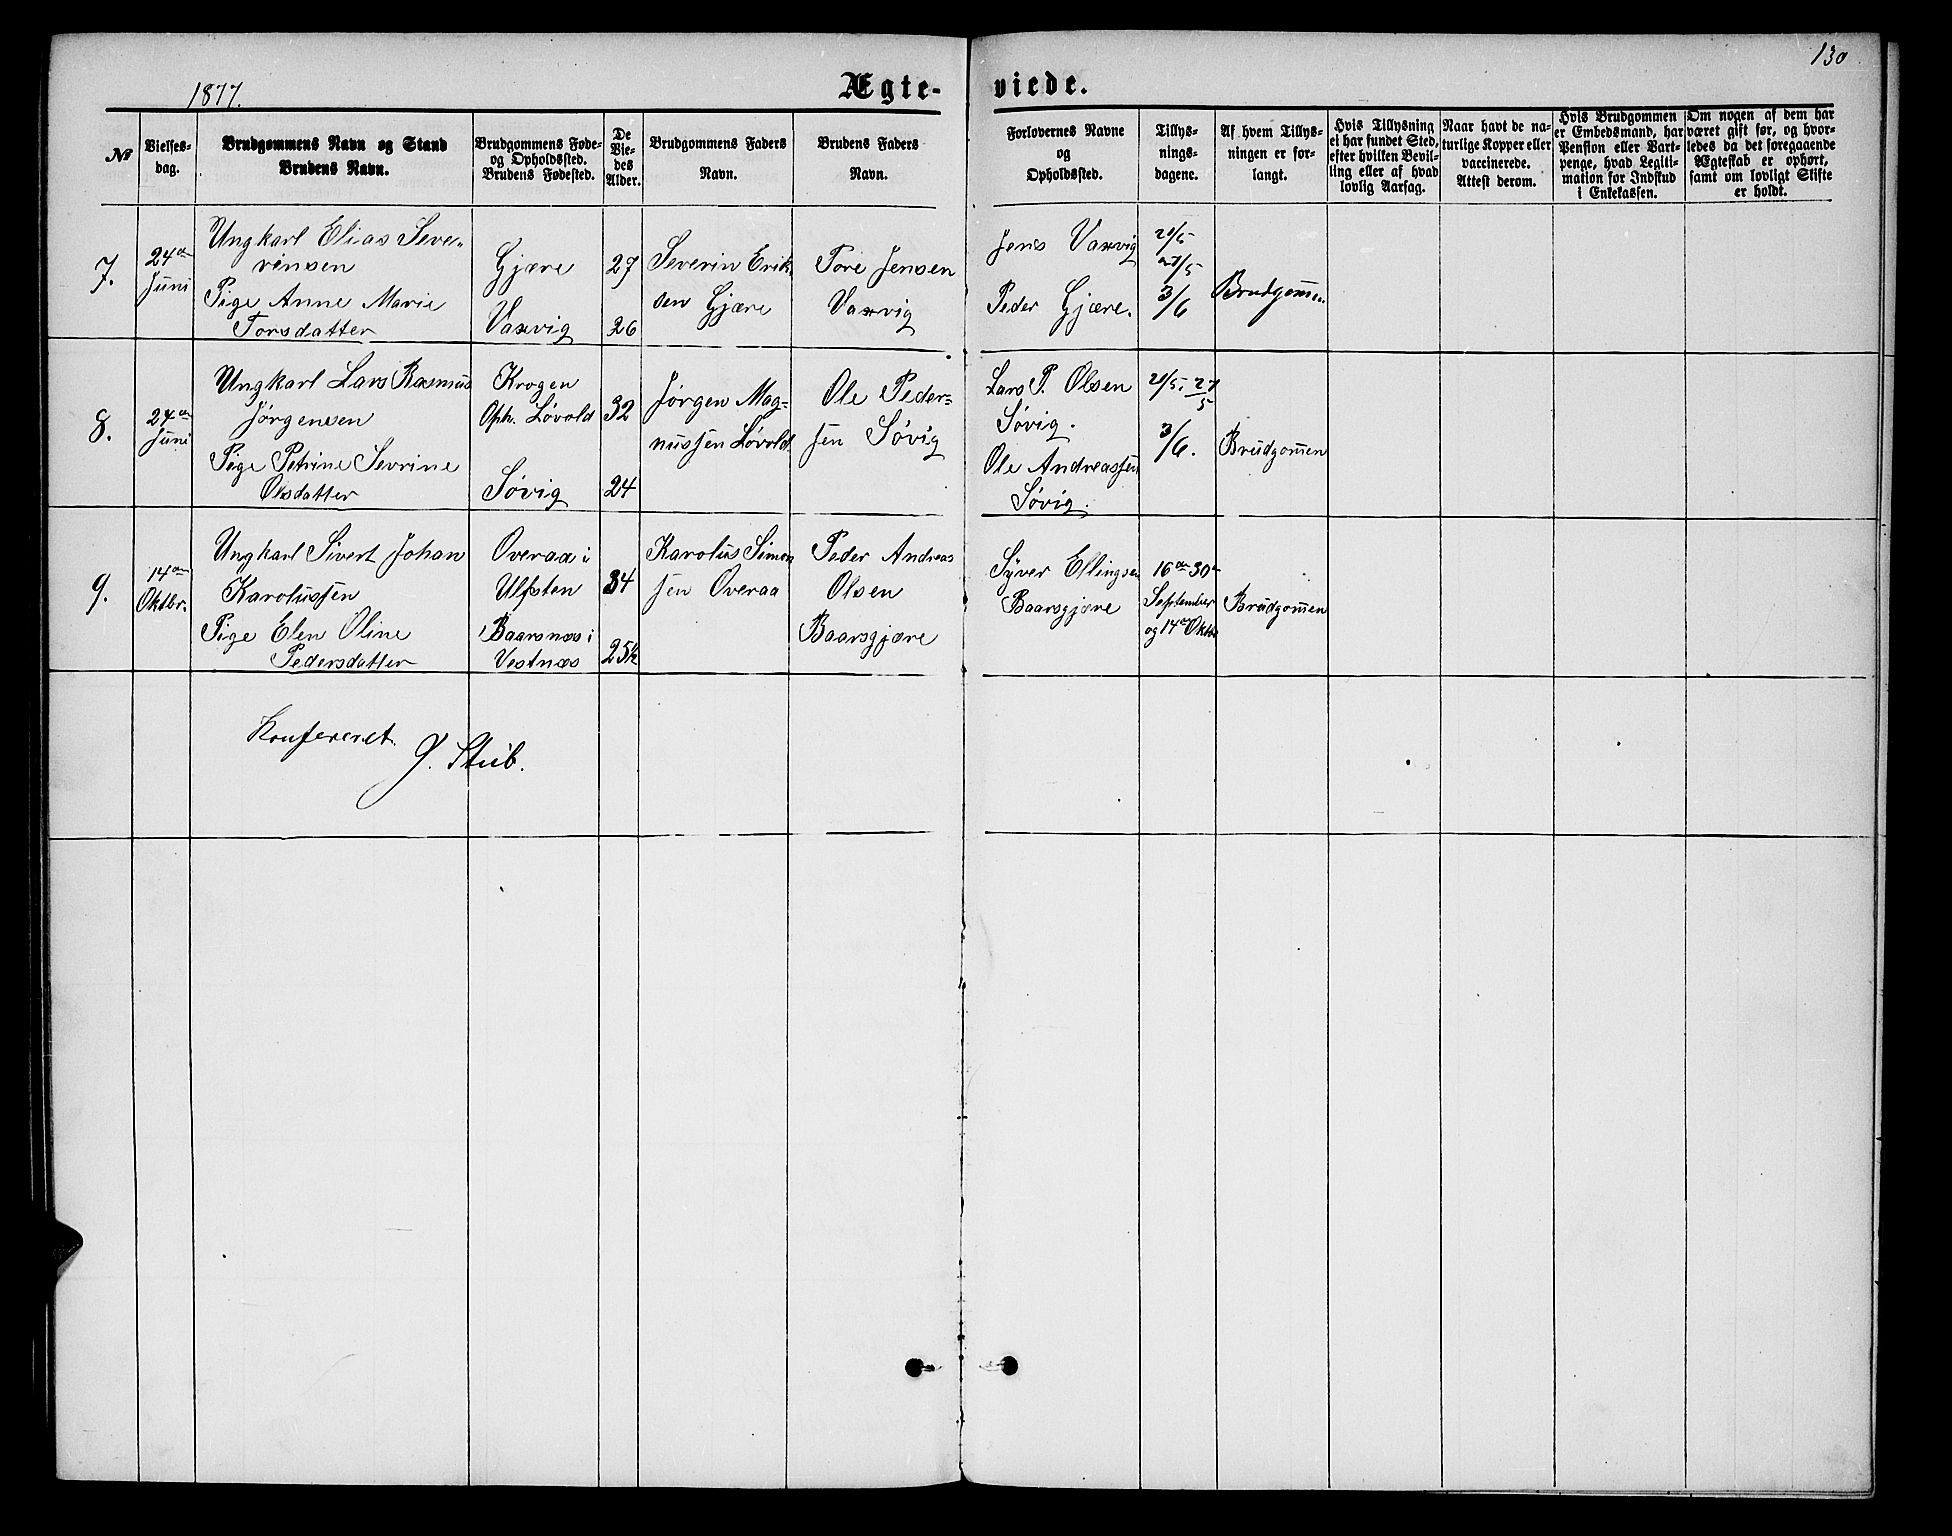 130
1877.
Ægte-
viede.
№
Vielses-
dag.
Brudgommens Navn og Stand
Brudens Navn.
Brudgommens Føde-
og Opholdssted.
Brudens Fødested.
De
Vie-
des
Alder.
Brudgommens Faders
Navn.
Brudens Faders
Navn.
Forlovernes Navne
og
Opholdssted.
Tillys-
nings-
dagene.
Af hvem Tillys-
ningen er for-
langt.
Hvis Tillysning
ei har fundet Sted,
efter hvilken Bevil-
ling eller af hvad
lovlig Aarsag.
Naar havt de na-
turlige Kopper eller
vaccinerede.
Attest derom.
Hvis Brudgommen
er Embedsmand, har
Pension eller Vart-
penge, hvad Legiti-
mation for Indskud
i Enkekassen.
Om nogen af dem har
været gift før, og hvor-
ledes da det foregaaende
Ægteskab er ophørt,
samt om lovligt Skifte
er holdt.
7.
24de
Juni
Ungkarl Elias Seve-
rinsen
Pige Anne Marie
Torsdatter
Gjære
Vaxvig
27
26
Severin Erik-
sen Gjære
Tore Jensen
Vaxvig
Jens Vaxvig
Peder Gjære.
20/5
27/5
3/6
Brudgommen
8.
24de
Juni
Ungkarl Lars Rasmus
Jörgensen
Pige Petrine Sevrine
Olsdatter
Krogen
Oph. Løvold
Søvig
32
24
Jørgen Mag-
nussen Løvold
Ole Peder-
sen Søvig
Lars P. Olsen
Søvig.
Ole Andreassen
Søvig.
20/5, 27/5
3/6.
Brudgom̄en
9.
14de
Oktbr.
Ungkarl Sivert Johan
Karolussen
Pige Elen Oline
Pedersdatter
Overaa i
Ulfsten
Baarsnæs i
Vestnæs
34
25½
Karolus Simon
sen Overaa
Peder Andreas
Olsen
Baarsgjære
Syver Ellingsen
Baarsgjære
16de 30te
September
og 14de Oktbr
Brudgom̄en
Konfereret.
G. Stub.